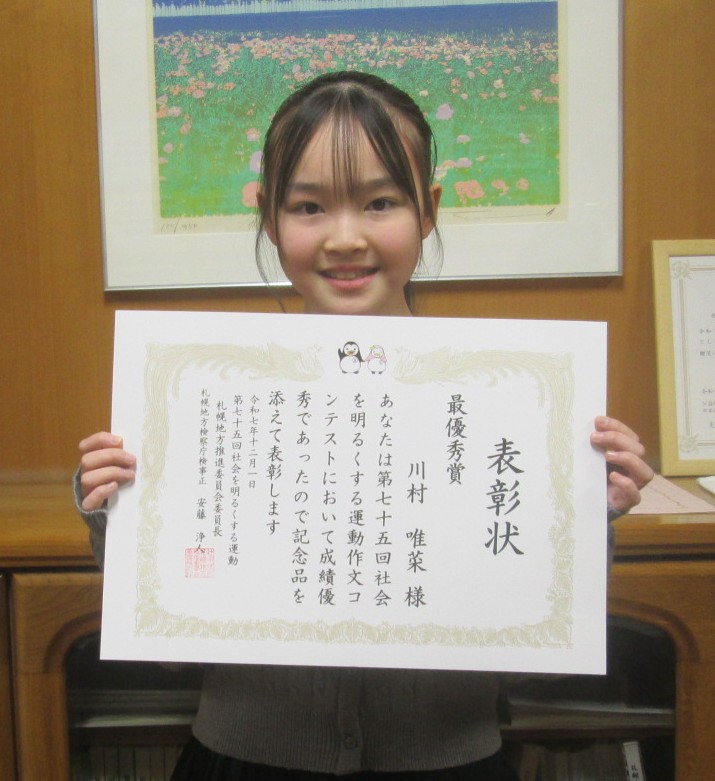 表彰状
最優秀賞
川村 唯菜 様
あなたは第七十五回社会
を明るくする運動作文コ
ンテストにおいて成績優
秀であったので記念品を
添えて表彰します
令和七年十二月一日
第七十五回社会を明るくする運動
札幌地方推進委員会委員長
札幌地方検察庁検事正 安藤 浄人